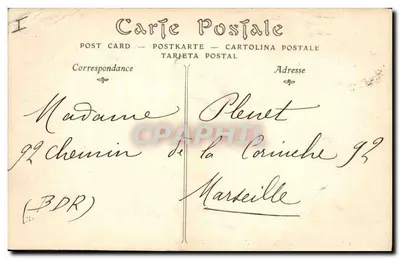 I
Carte Postale
POST CARD — POSTKARTE — CARTOLINA POSTALE
TARJETA POSTAL
Correspondance
Adresse
Madame Plenet
92 chemin de la Corniche 92
Marseille
(BDR)
CPAPHIL